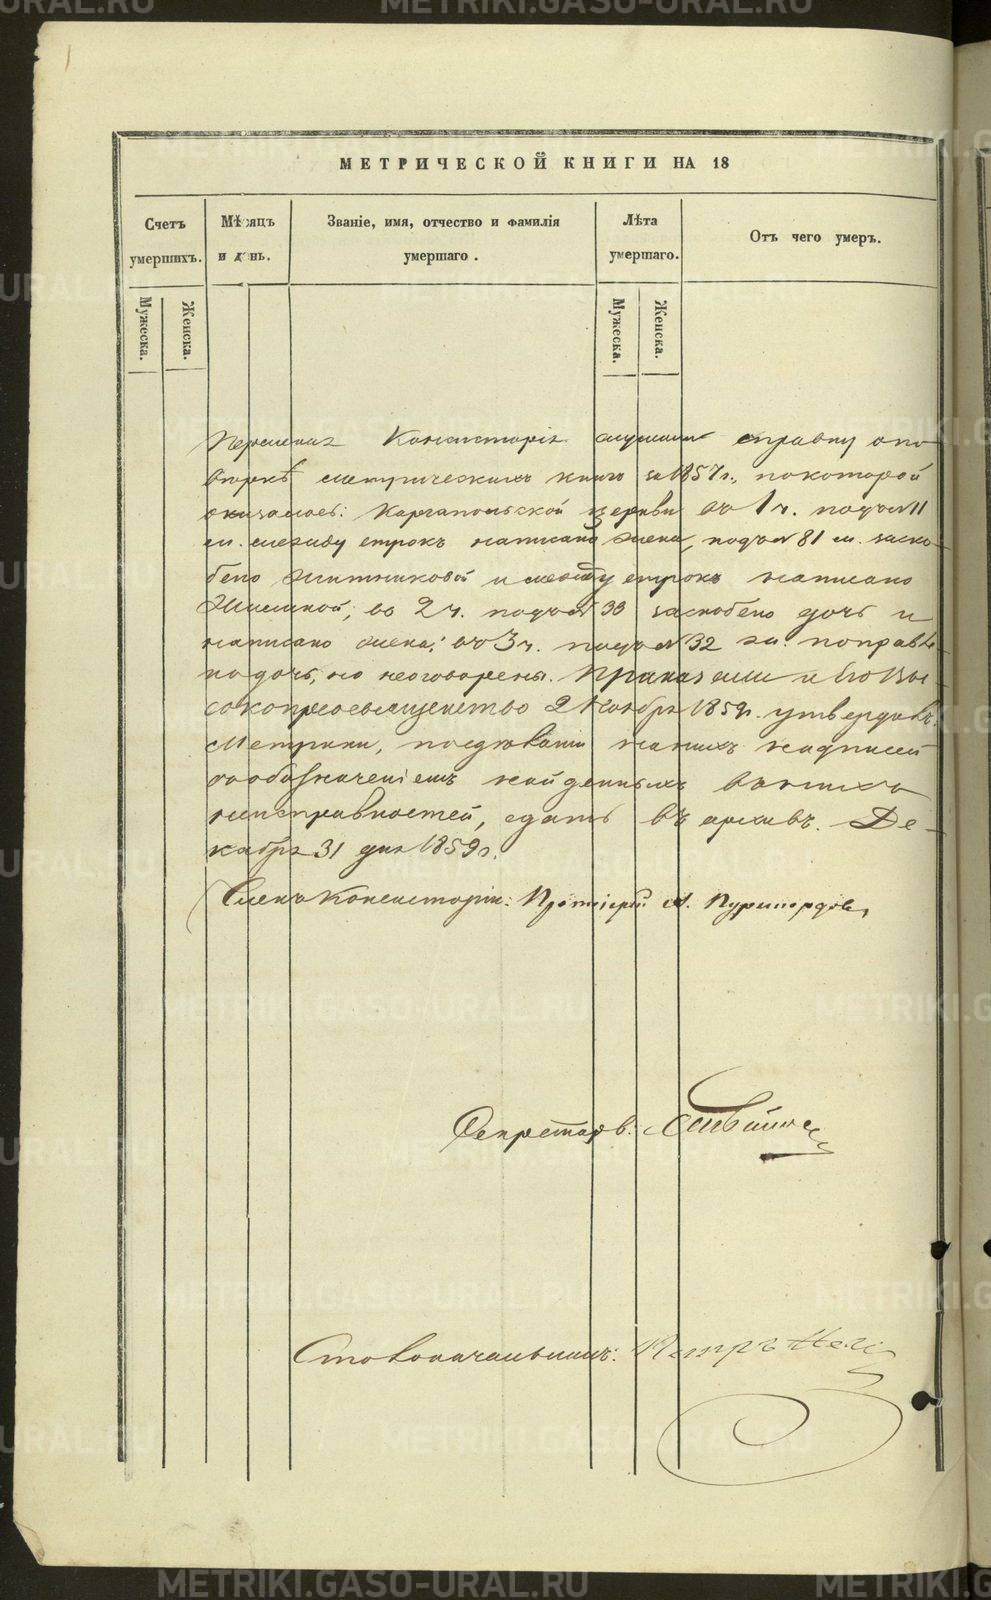 МЕТРИЧЕСКОЙ КНИГИ НА 18
Счетъ умершихъ.
Мѣсяцъ и день.
Званіе, имя, отчество и фамилія умершаго.
Лѣта умершаго.
Отъ чего умеръ.
Мужеска.
Женска.
Мужеска.
Женска.
Пермская Консисторія слушали справку опо-
вѣркѣ метрическихъ книгъ за 1857 г., покоторой
оказалось: Каргапольской церкви въ 1 ч. подъ № 11
м. между строкъ написано жена, подъ № 81 м. заско-
бено Житниковой и между строкъ написано
въ 2 ч. подъ № 33 заскоблено дочь и
написано жена; въ 3 ч. подъ № 32 поправле-
на дочь, но неоговорены. Приказали и Его Вы-
сокопреосвященство 2 Ноября 1859 г. утвердилъ:
Метрики, на нихъ надписей
собозначеніемъ найденныхъ въ нихъ
неисправностей, сдать въ архивъ. Де-
кабря 31 дня 1859 г.
Членъ Консисторіи: Протоіерей А.
Секретарь:
Столоначальникъ: Петръ
METRIKI.GASO-URAL.RU